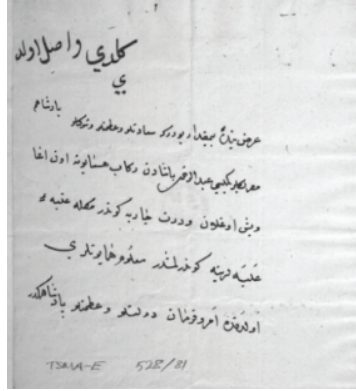 كلدي واصل اولد
ي
پادشاهم
عرض بنده بيمقدار بودركه سعادتلو وعظمتلو وشوكتلو
مصر بكلربكيسي عبدالرحمن پاشادن ركاب همايونه اون اغا
وبش اوغلان ودرت جاريه كوندرمكله عتبه
عليه لرينه كوندرلمشدر معلوم همايونلري
اولدقده امر وفرمان دولتلو وعظمتلو پادشاهمكدر
TSMA-E 528/81